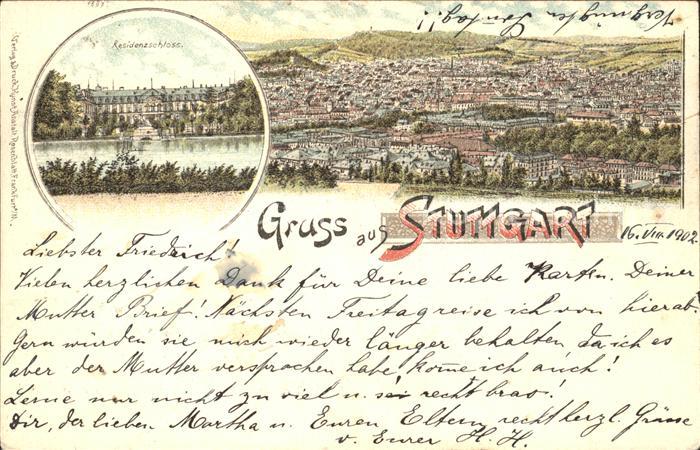 1897
Vergnügten Sonntag!!
Residenzschloss.
Gruss aus STUTTGART
16. VIII. 1902
Liebster Friedrich!
Vielen herzlichen Dank für Deine liebe Karten. Deiner
Mutter Brief! Nächsten Freitag reise ich von hier ab.
Gern würden sie mich wieder länger behalten da ich es
aber der Mutter versprochen habe kome ich auch!
Lerne nur nicht zu viel u. sei recht brav!
Dir, der lieben Martha u. Euren Eltern recht herzl. Grüsse
v. Eurer H. H.